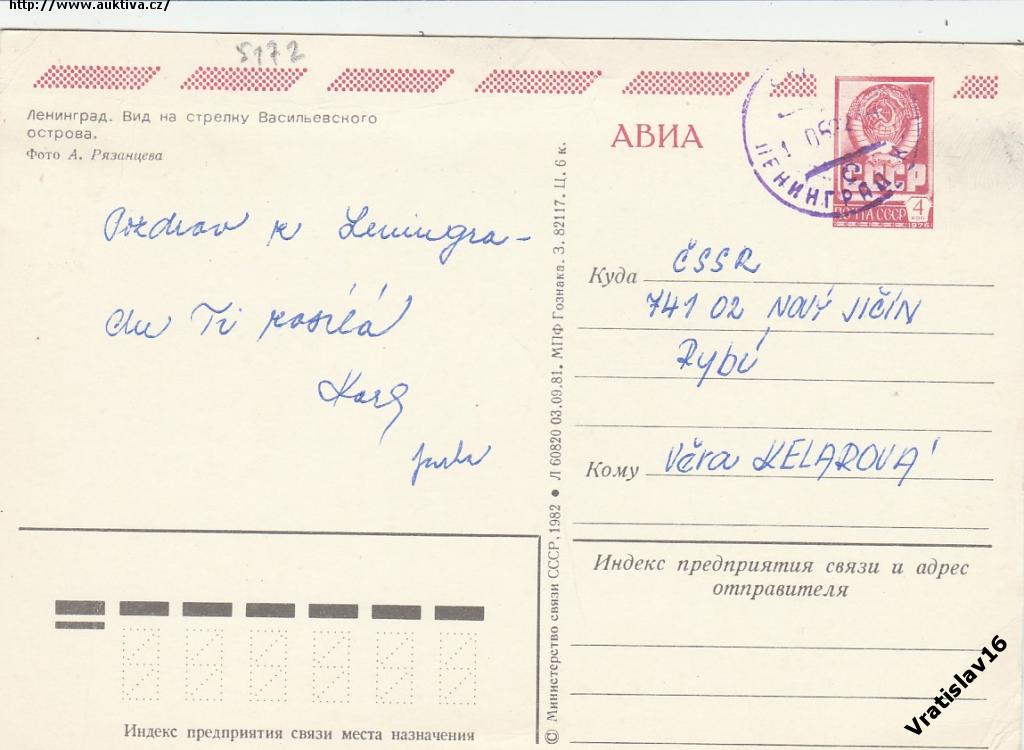 http://www.auktiva.cz/
5172
Ленинград. Вид на стрелку Васильевского
острова.
Фото А. Рязанцева
АВИА
ЛЕНИНГРАД
СССР
ПОЧТА СССР
4
КОП
1976
Pozdrav z Leningra-
du Ti posílá
Куда ČSSR
741 02 NOVÝ JIČÍN
Rybí
Кому Věra KELAROVÁ
© Министерство связи СССР, 1982 ● Л 60820 03.09.81. МПФ Гознака. З. 82117. Ц. 6 к.
Индекс предприятия связи и адрес
отправителя
Индекс предприятия связи места назначения
Vratislav16